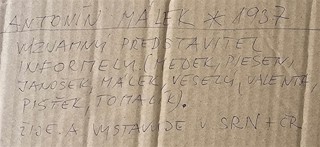 ANTONÍN MÁLEK * 1937
VÝZNAMNÝ PŘEDSTAVITEL
INFORMELU (MEDEK, PIESEN,
JANOŠEK, MÁLEK, VESELÝ, VALENTA,
PIŠTĚK, TOMALÍK).
ŽIJE A VYSTAVUJE V SRN + ČR